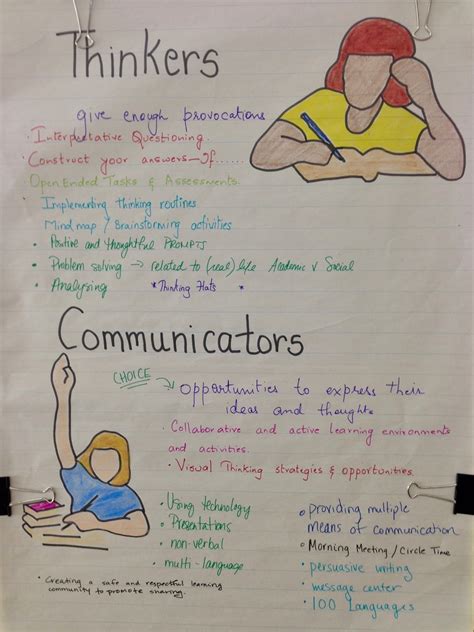 Thinkers
give enough provocations
· Interpretative Questioning
· Construct your answers - If.....
Open Ended Tasks & Assessments.
Implementing thinking routines
Mind map / Brainstorming activities
• Positive and thoughtful PROMPTS
• Problem solving → related to (real) life Academic & Social
• Analysing *Thinking Hats *
Communicators
CHOICE → opportunities to express their
ideas and thoughts
· Collaborative and active learning environments
and activities.
· Visual Thinking strategies & opportunities.
• Using technology
• Presentations
• non-verbal
• multi-language
• providing multiple
means of communication
• Morning Meeting / Circle Time
• persuasive writing
• message center
• 100 Languages
• Creating a safe and respectful learning
community to promote sharing.